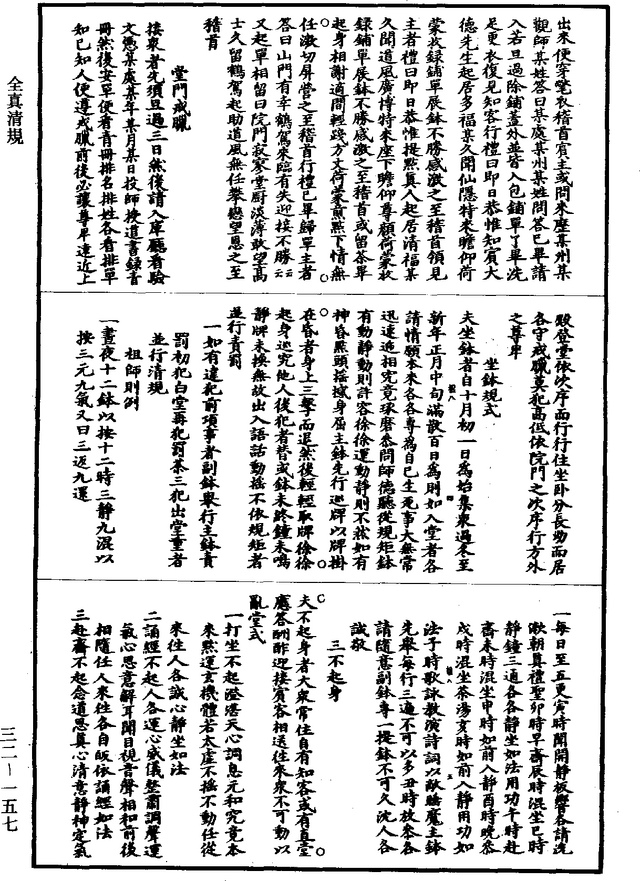 全真清規
出來便穿氅衣稽首賓主或問來歷某州某
觀師某姓答曰某處某州某姓問答已畢請
入若旦過除鋪蓋外並皆入包鋪單了畢洗
足更衣復見知客行禮曰即日恭惟知賓大
德先生起居多福某久聞仙隱特來瞻仰荷
蒙收錄鋪單展鉢不勝感激之至稽首領見
主者禮曰即日恭惟提點真人起居清福某
久聞道風廣博特來座下瞻仰尊顏荷蒙收
錄鋪單展鉢不勝感激之至稽首或留茶畢
起身相謝適間輕踐方丈荷蒙煎點下情無
任激切屏營之至稽首行禮已畢歸單主者
答曰山門有幸鶴駕來臨有失迎接不勝云云
又起單相留曰院門寂寥堂廚淡薄敢望高
士久留鶴駕起助道風無任攀戀望恩之至
稽首
堂門戒臘
接衆者先須旦過三日然後請入庫廳看驗
文憑某處某年某月某日投師授道書錄音
冊然後安單便看青冊排名排姓各看排單
知已知人便遵戒臘前後必讓尊卑遠近上
殿登堂依次序而行行住坐卧分長幼而居
各守戒臘莫犯高低依院門之次序行方外
之尊卑
坐鉢規式
夫坐鉢者自十月初一日為始集衆過冬至
新年正月中旬滿散百日為則如入堂者各
請情願本來各各專為自己生死事大無常
迅速遞相究竟琢磨叅問師德聽從規矩鉢
有動靜動則許容徐徐運動靜則不拔如有
神昏點頭搖撼身屈主鉢先行巡牌以牌掛
在昏者身上三擊而退然後輕輕取牌徐徐
起身巡究他人後犯者替或鉢未終鐘未鳴
靜牌未换無故出入語話動搖不依規矩者
並行責罰
一如有違犯前項事者副鉢舉行主鉢責
罰初犯白堂再犯罰茶三犯出堂重者
並行清規
祖師則例
一晝夜十二鉢以按十二時三靜九混以
按三元九氣又曰三返九還
一每日至五更寅時聞開靜板響各請洗
漱朝真禮聖卯時早齋辰時混坐巳時
靜鐘三通各各靜坐如法用功午時赴
齋未時混坐申時如前入靜酉時晚叅
戌時混坐茶湯亥時如前入靜用功如
法子時歌詠教演詩詞以敵睡魔主鉢
先舉每行三遍不可以多丑時放叅各
請隨意副鉢專一提鉢不可久沈人各
誠敬
三不起身
夫不起身者大衆常住自有知客或有直堂
應答酬酢迎接賓客相送往來衆不可動以
亂堂式
一打坐不起澄湛天心調息元和究竟本
來然運玄機體若太虛不摇不動任從
來往人各誠心靜坐如法
二誦經不起人各運心威儀整肅調聲運
氣心思意解耳聞目視音聲相和前後
相隨任人來往各自皈依誦經如法
三赴齋不起念道思真心清意靜神定氣
三二—一五七